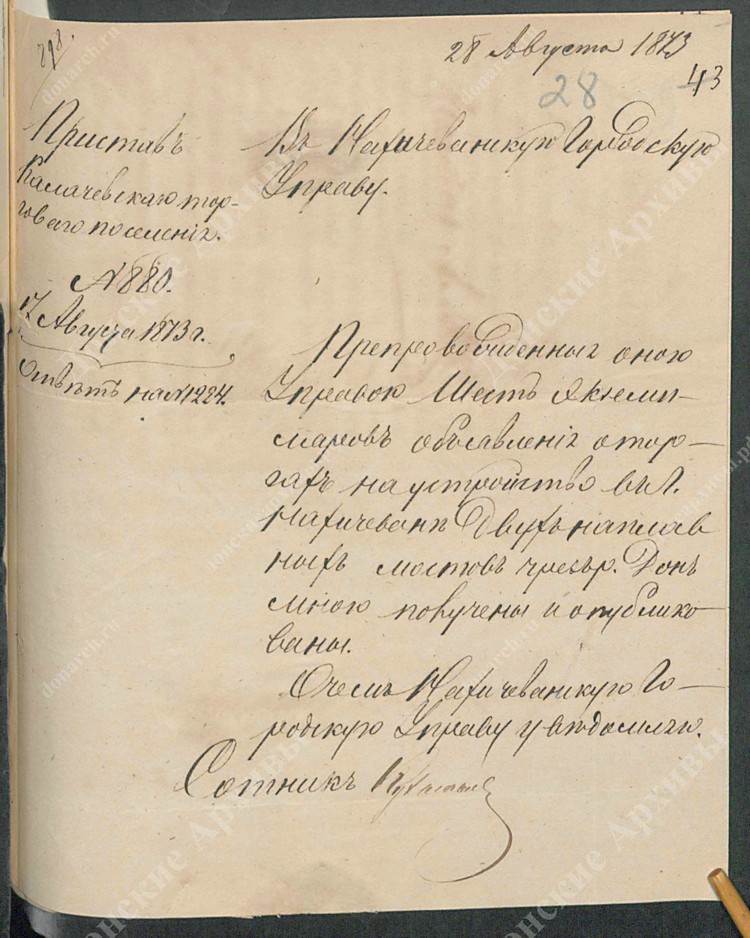 28 Августа 1873
43
28
Приставъ
Калачевскаго тор-
говаго поселенія.
№ 880.
17 Августа 1873 г.
Отвѣтъ на № 1224.
Въ Нахичеванскую Городскую
Управу.
Препровожденныя оною
Управою шесть экзэмп-
ляровъ объявленія о тор-
гахъ на устройство въ г.
Нахичевани двухъ наплав
ныхъ мостовъ чрезъ р. Донъ
мною получены и опублико-
ваны.
О чемъ Нахичеванскую Го-
родскую Управу увѣдомляю.
Сотникъ